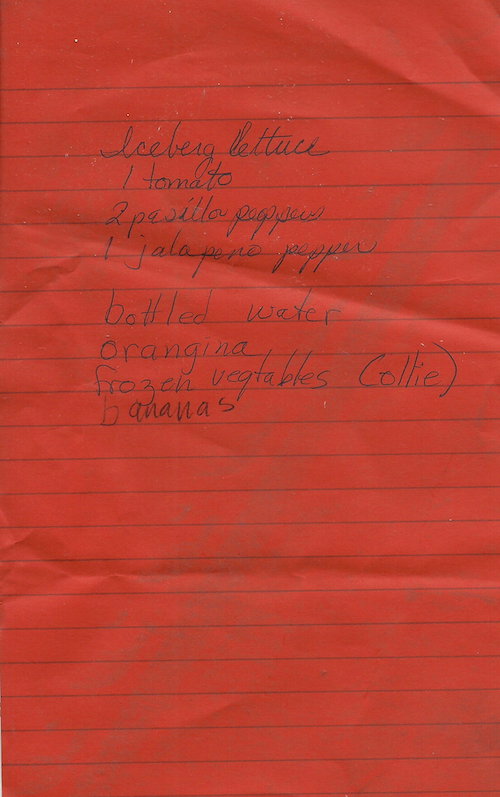 Iceberg lettuce
1 tomato
2 pasilla peppers
1 jalapeno pepper
bottled water
orangina
frozen vegtables (ollie)
bananas